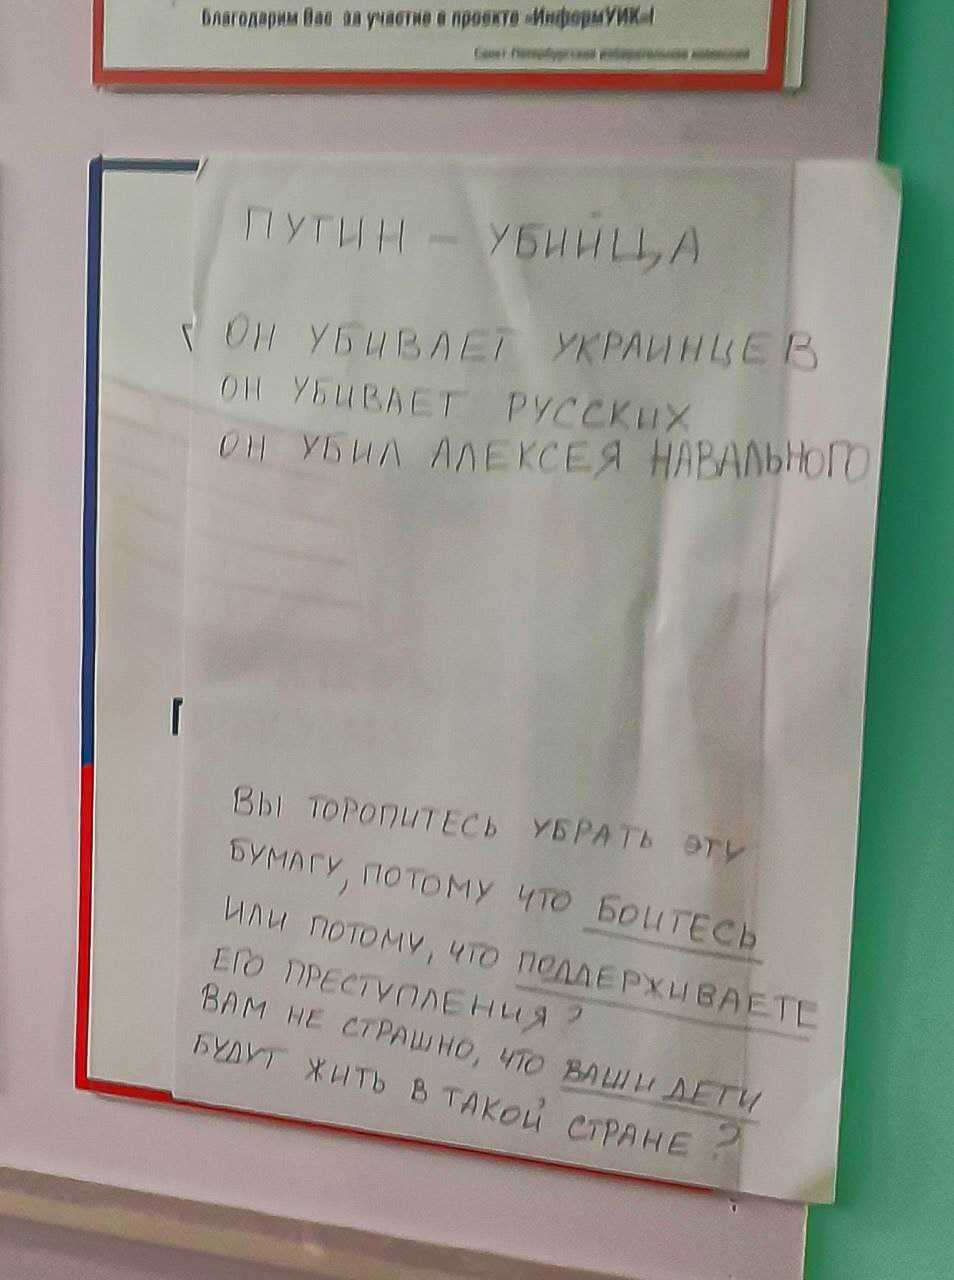 Благодарим Вас за участие в проекте «ИнформУИК»!
Санкт-Петербургская избирательная комиссия
ПУТИН – УБИЙЦА
ОН УБИВАЕТ УКРАИНЦЕВ
ОН УБИВАЕТ РУССКИХ
ОН УБИЛ АЛЕКСЕЯ НАВАЛЬНОГО
ВЫ ТОРОПИТЕСЬ УБРАТЬ ЭТУ
БУМАГУ, ПОТОМУ ЧТО БОИТЕСЬ
ИЛИ ПОТОМУ, ЧТО ПОДДЕРЖИВАЕТЕ
ЕГО ПРЕСТУПЛЕНИЯ?
ВАМ НЕ СТРАШНО, ЧТО ВАШИ ДЕТИ
БУДУТ ЖИТЬ В ТАКОЙ СТРАНЕ?